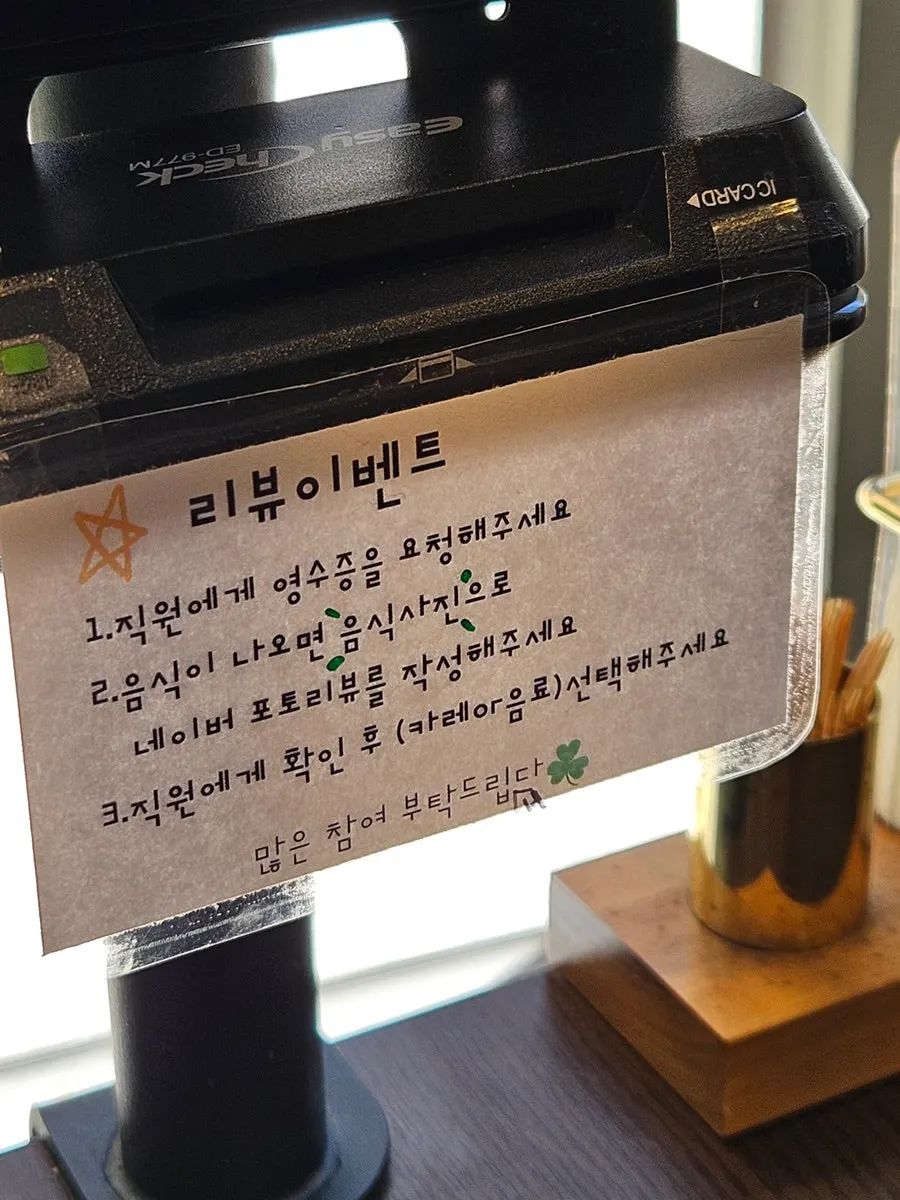 EasyCheck
ED-977M
IC CARD
리뷰이벤트
1.직원에게 영수증을 요청해주세요
2.음식이 나오면 음식사진으로
네이버 포토리뷰를 작성해주세요
3.직원에게 확인 후 (카레아음료)선택해주세요
많은 참여 부탁드립다